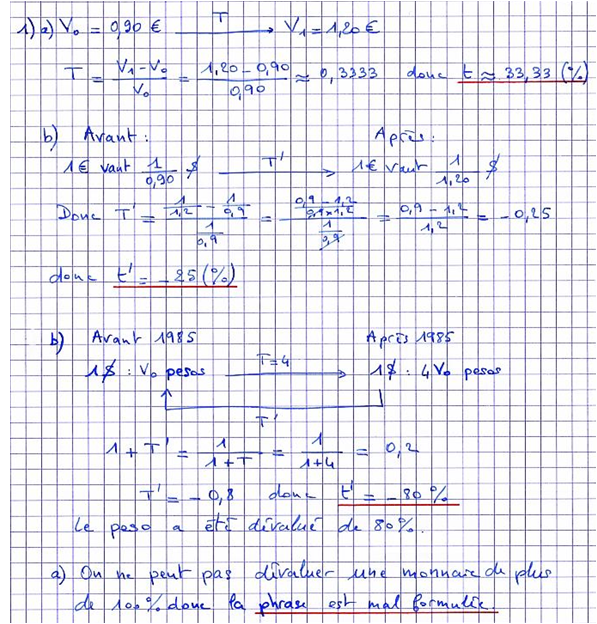 1) a) V₀ = 0,90 € —T→ V₁ = 1,20 €
T = (V₁ - V₀)/V₀ = (1,20 - 0,90)/0,90 ≈ 0,3333 donc t ≈ 33,33 (%)
b) Avant : Après :
1 € vaut 1/0,90 $ —T'→ 1 € vaut 1/1,20 $
Donc T' = (1/1,2 - 1/0,9)/(1/0,9) = ((0,9 - 1,2)/(0,9×1,2))/(1/0,9) = (0,9 - 1,2)/1,2 = - 0,25
donc t' = - 25 (%)
b) Avant 1985 Après 1985
1 $ : V₀ pesos —T=4→ 1 $ : 4 V₀ pesos
T'
1 + T' = 1/(1+T) = 1/(1+4) = 0,2
T' = - 0,8 donc t' = - 80 %
Le peso a été dévalué de 80%.
a) On ne peut pas dévaluer une monnaie de plus
de 100% donc la phrase est mal formulée.